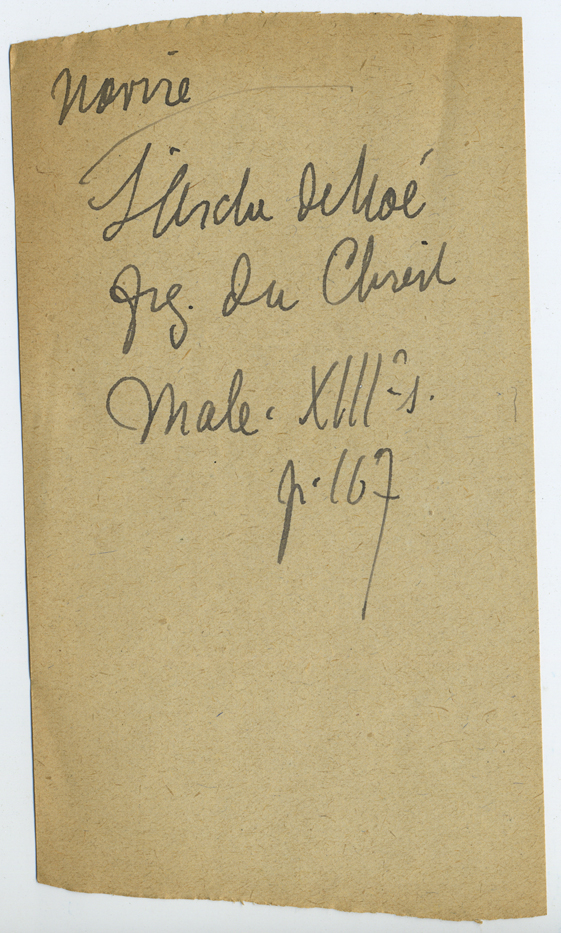 Navire
L'Arche de Noé
fig. du Christ
Male. XIIIe s.
p. 167